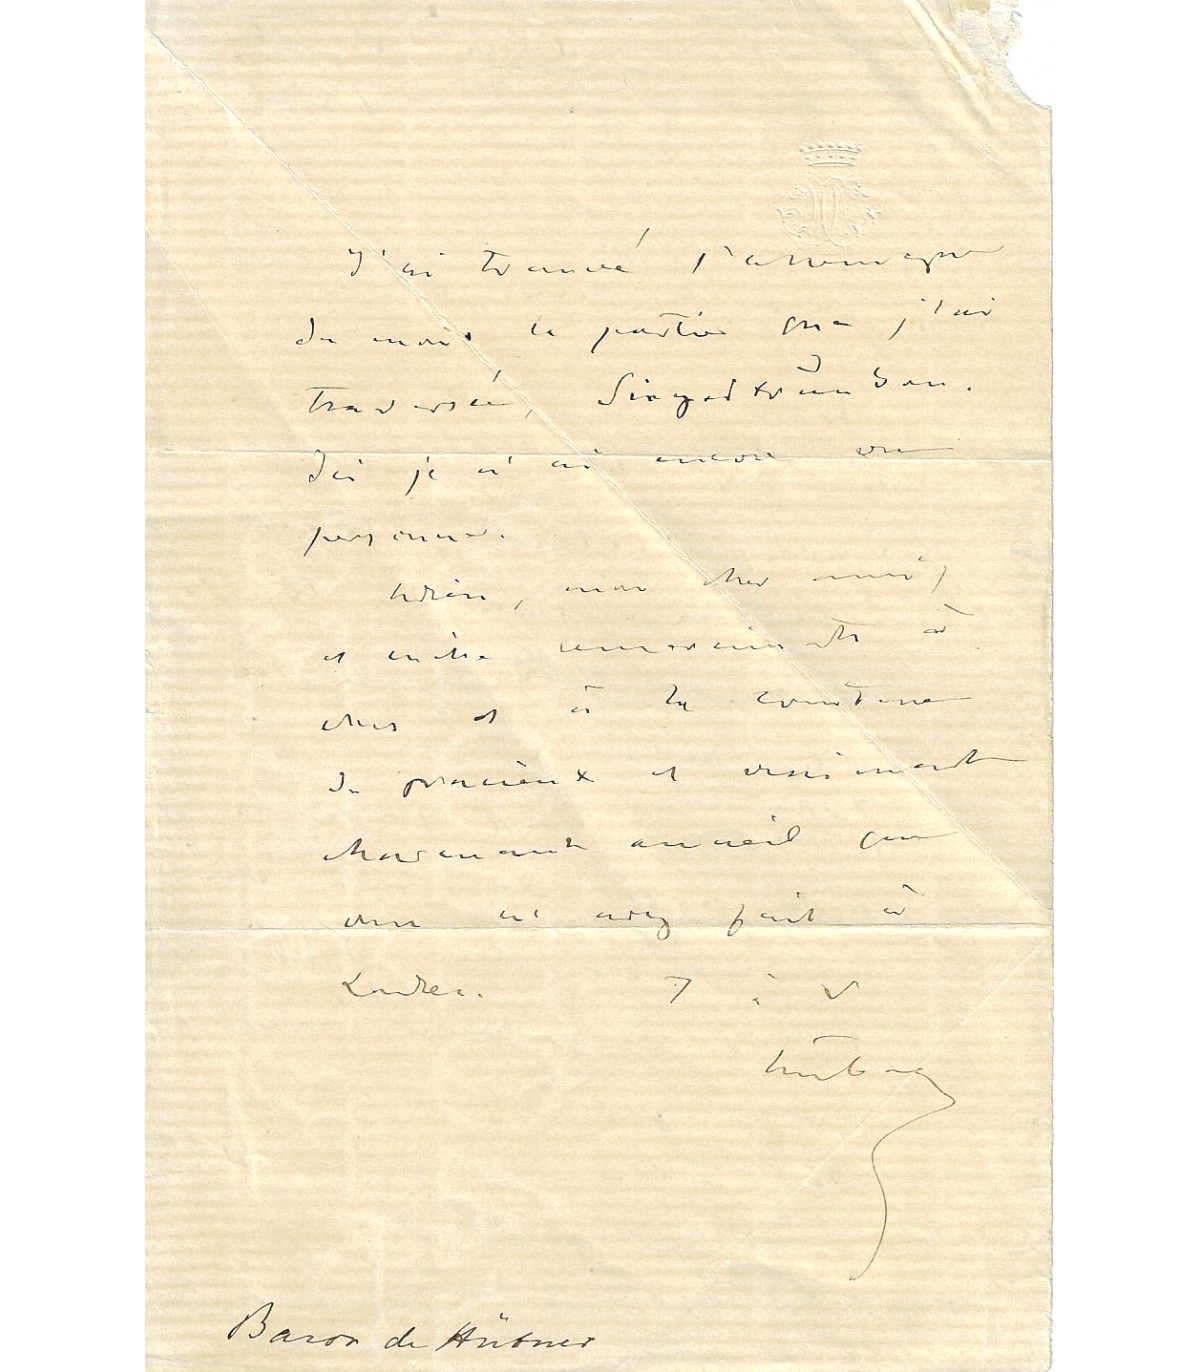 J'ai trouvé l'Allemagne
du moins la partie que j'ai
traversée,
Ici je n'ai encore vu
personne.
Adieu, mon cher ami,
et mille remerciments à
vous et à la comtesse
du gracieux et vraiment
charmant accueil que
vous m'avez fait à
Londres. T. à V.
Hübner
Baron de Hübner